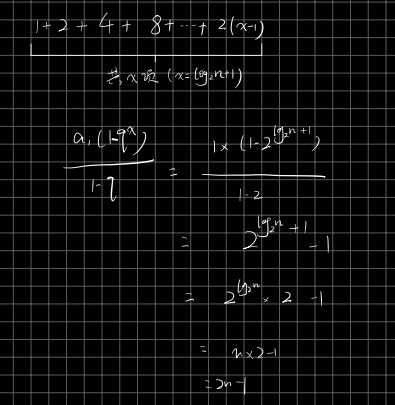 1 + 2 + 4 + 8 + ⋯ + 2(x-1)
共 x 项 (x = log₂n+1)
a₁(1-q^x) / (1-q) = 1×(1-2^(log₂n+1)) / (1-2)
= 2^(log₂n+1) - 1
= 2^(log₂n) × 2 - 1
= n×2-1
= 2n-1